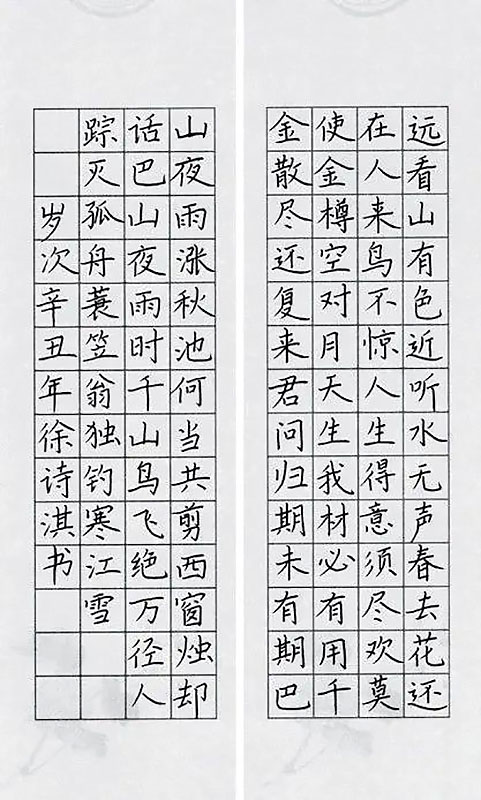 远看山有色近听水无声春去花还
在人来鸟不惊人生得意须尽欢莫
使金樽空对月天生我材必有用千
金散尽还复来君问归期未有期巴
山夜雨涨秋池何当共剪西窗烛却
话巴山夜雨时千山鸟飞绝万径人
踪灭孤舟蓑笠翁独钓寒江雪
岁次辛丑年徐诗淇书